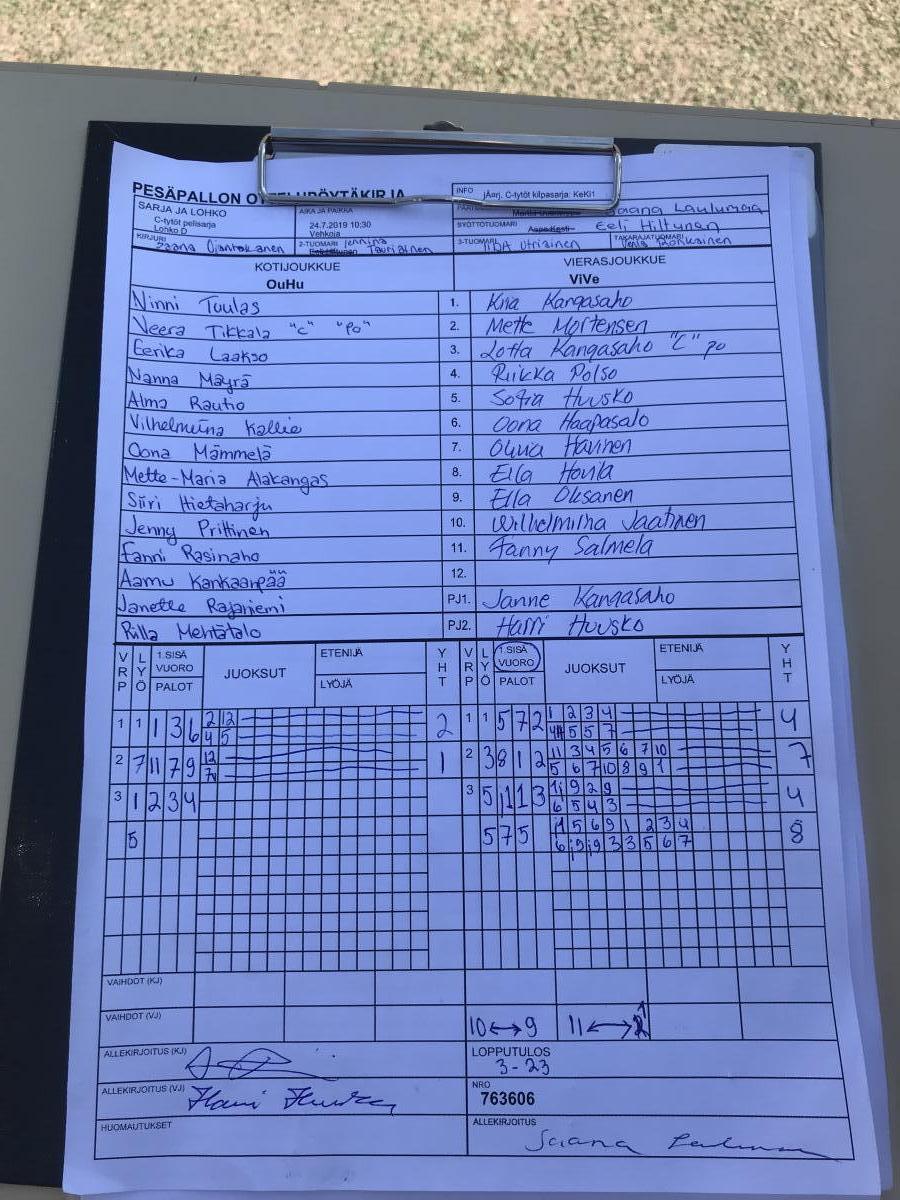 PESÄPALLON OTTELUPÖYTÄKIRJA
INFO jÄarj. C-tytöt kilpasarja: KeKi1
SARJA JA LOHKO
C-tytöt pelisarja
Lohko D
AIKA JA PAIKKA
24.7.2019 10:30
Vehkoja
Saana Laulumaa
SYÖTTÖTUOMARI Eeli Hiltunen
KIRJURI Saana Ojantakanen
2-TUOMARI Jennina Tauriainen
3-TUOMARI IIDA Utriainen
TAKARAJATUOMARI
KOTIJOUKKUE VIERASJOUKKUE
OuHu ViVe
Ninni Tuulas 1. Kangasaho
Veera Tikkala "C" "Po" 2. Mette Mortensen
Eerika Laakso 3. Lotta Kangasaho "C" po
Nanna Mäyrä 4. Riikka Polso
Alma Rautio 5. Sofia Huusko
Vilhelmiina Kallio 6. Oona Haapasalo
Oona Mämmelä 7. Olivia Havinen
Mette-Maria Alakangas 8. Ella
Siiri Hietaharju 9. Ella Oksanen
Jenny Prittinen 10. Wilhelmiina Jaatinen
Fanni Rasinaho 11. Fanny Salmela
Aamu Kankaanpää 12.
Janette Rajaniemi PJ1. Janne Kangasaho
Riila Mehtätalo PJ2. Harri Huusko
VRP LYÖ 1.SISÄ VUORO PALOT JUOKSUT ETENIJÄ LYÖJÄ YHT VRP LYÖ 1.SISÄ VUORO PALOT JUOKSUT ETENIJÄ LYÖJÄ YHT
1 1 1 3 6 2 12 2 1 1 5 7 2 1 2 3 4 4
4 5 5 5 7
2 7 11 7 9 12 1 2 3 8 1 2 11 3 4 5 6 7 10 7
5 6 7 10 8 9 1
3 1 2 3 4 3 5 11 1 3 9 2 9 4
6 5 4 3
5 5 7 5 5 6 9 1 2 3 4 8
6 3 3 5 6 7
VAIHDOT (KJ)
VAIHDOT (VJ) 10↔9 11↔
ALLEKIRJOITUS (KJ) LOPPUTULOS
3-23
ALLEKIRJOITUS (VJ) NRO
763606
HUOMAUTUKSET ALLEKIRJOITUS
Saana